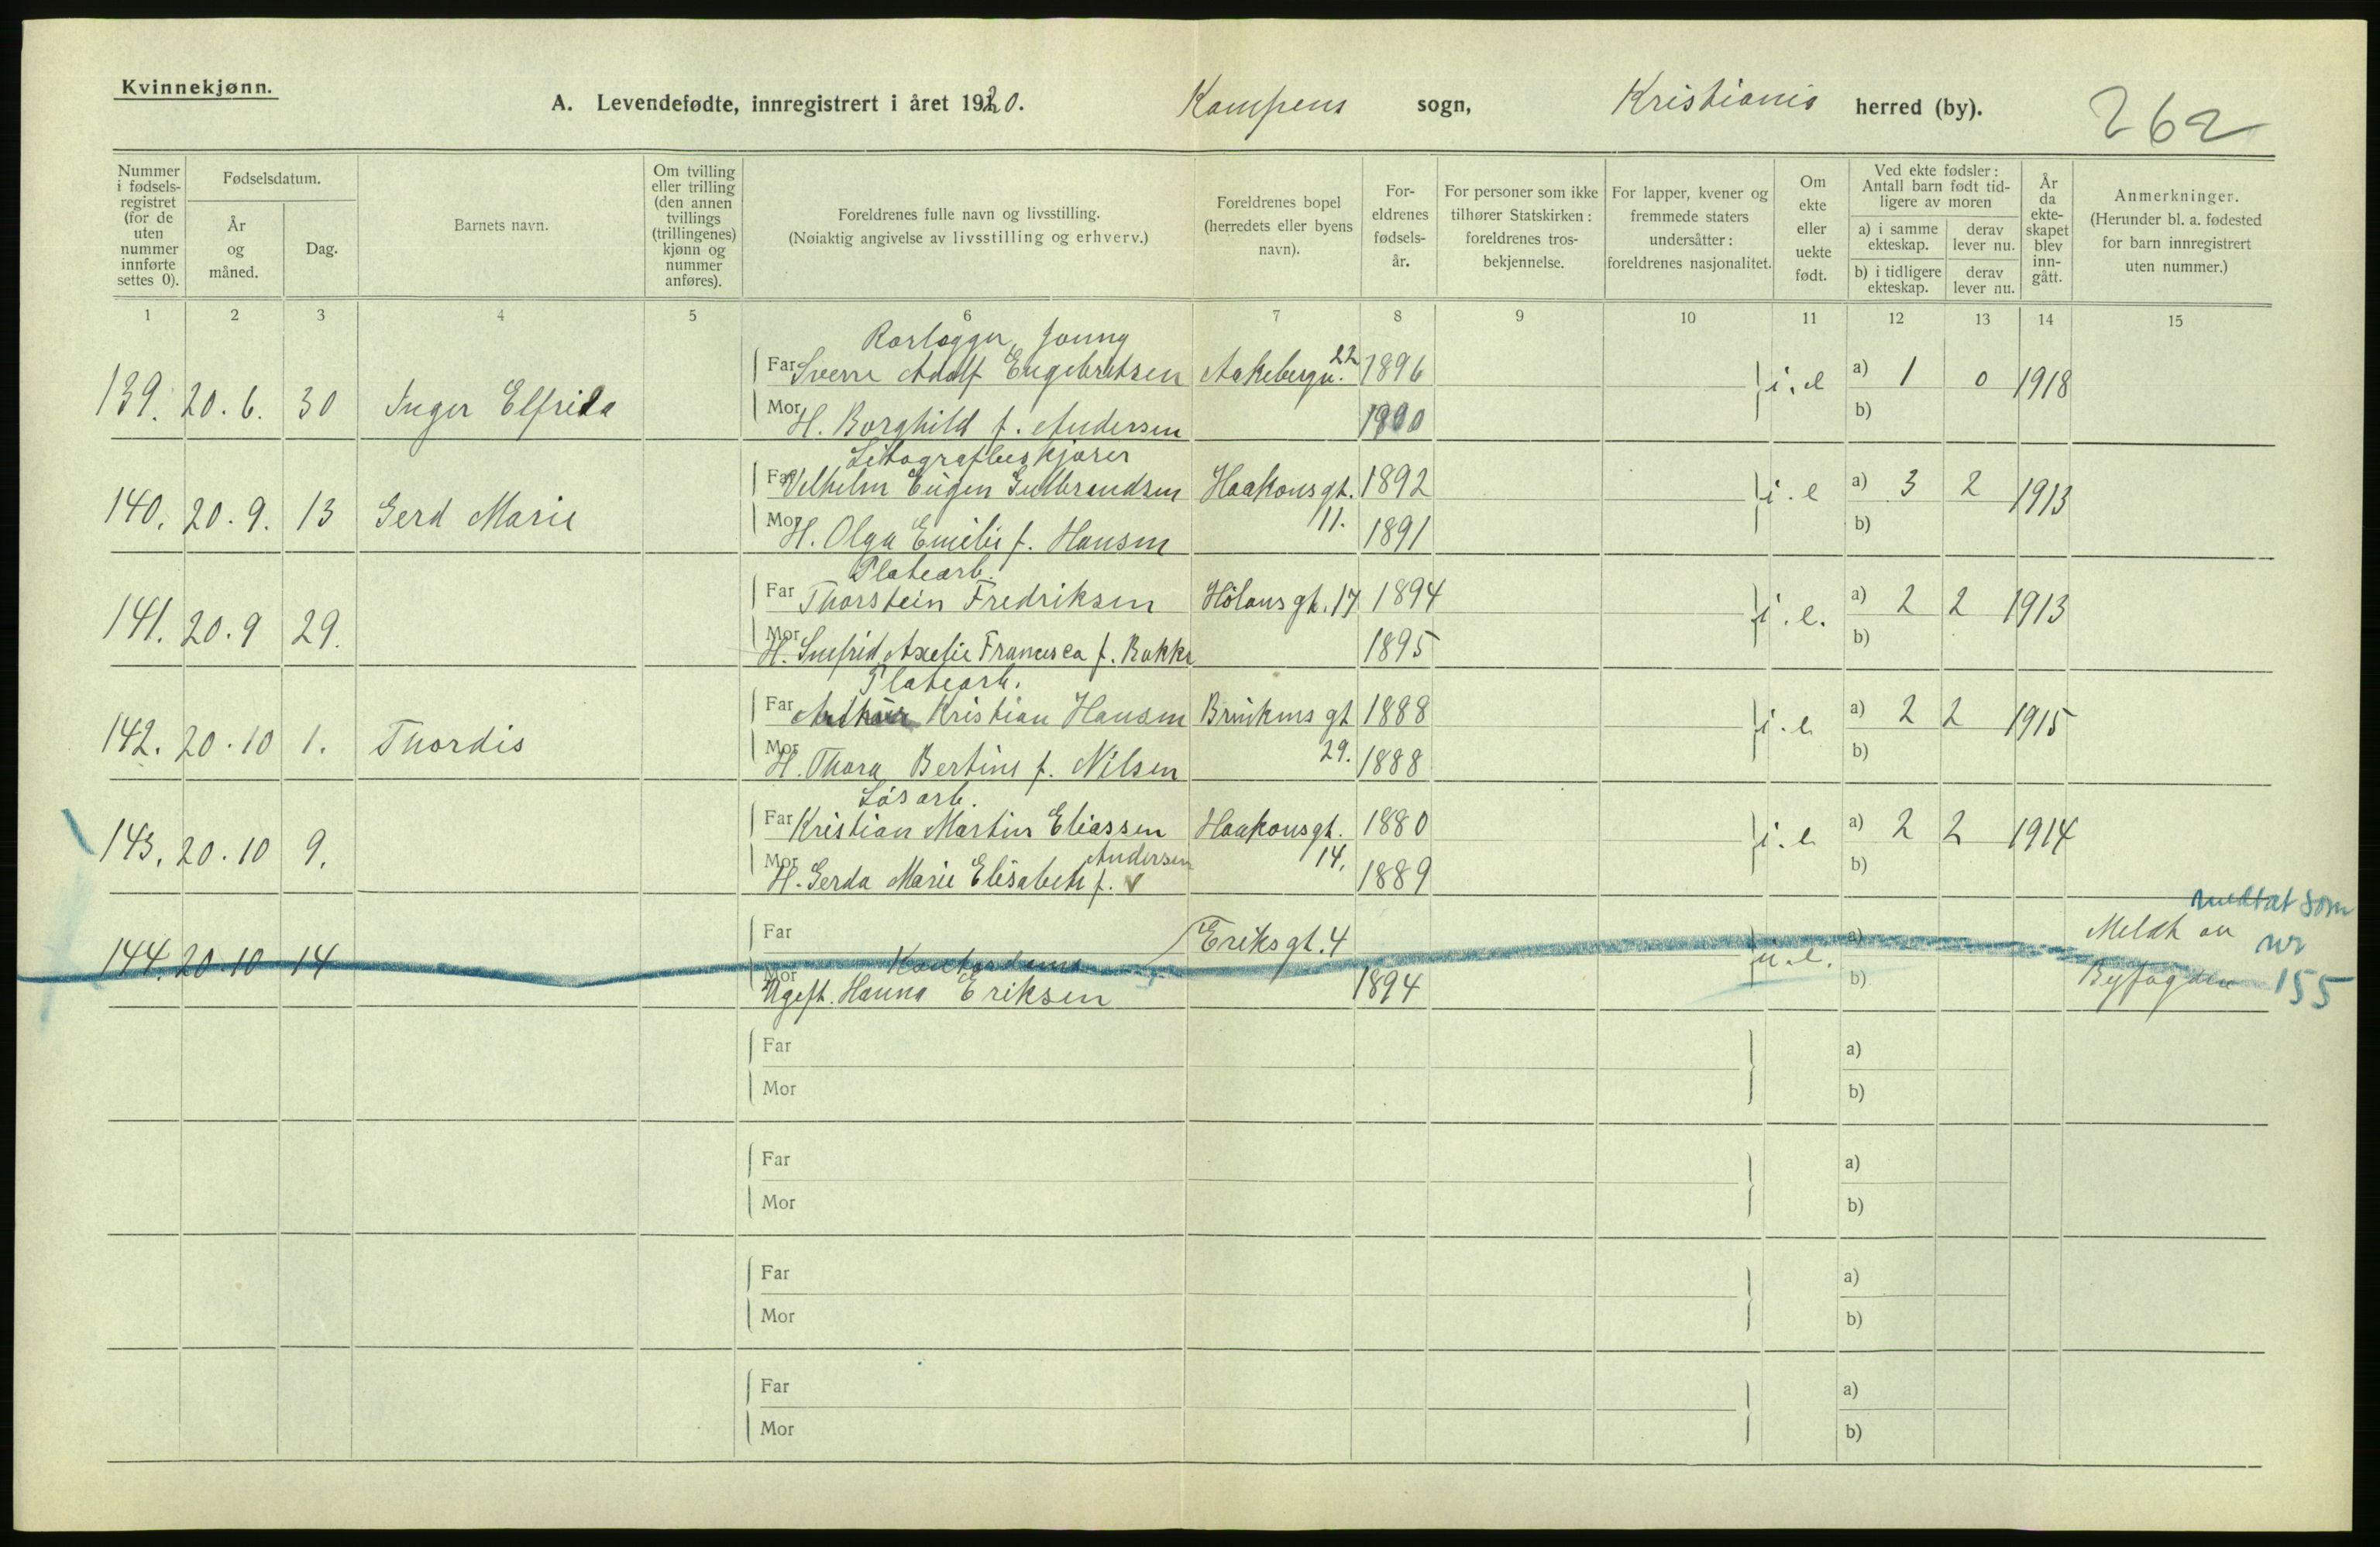 Kvinnekjønn.
A. Levendefødte, innregistrert i året 1920. Kampens sogn, Kristiania herred (by). 262
Nummer i fødsels-registret (for de uten nummer innførte settes 0).
Fødselsdatum.
År og måned.
Dag.
Barnets navn.
Om tvilling eller trilling (den annen tvillings (trillingenes) kjønn og nummer anføres).
Foreldrenes fulle navn og livsstilling.
(Nøiaktig angivelse av livsstilling og erhverv.)
Foreldrenes bopel (herredets eller byens navn).
For-eldrenes fødsels-år.
For personer som ikke tilhører Statskirken: foreldrenes tros-bekjennelse.
For lapper, kvener og fremmede staters undersåtter: foreldrenes nasjonalitet.
Om ekte eller uekte født.
Ved ekte fødsler: Antall barn født tid-ligere av moren
a) i samme ekteskap.
derav lever nu.
b) i tidligere ekteskap.
derav lever nu.
År da ekte-skapet blev inn-gått.
Anmerkninger.
(Herunder bl. a. fødested for barn innregistrert uten nummer.)
1 2 3 4 5 6 7 8 9 10 11 12 13 14 15
Rørlægger
139. 20.6. 30 Inger Elfrida Far Sverre Adolf Engebretsen Aakebergv. 22 1896 i.e a) 1 0 1918
Mor H. Borghild f. Andersen 1900 b)
Litografbeskjærer
140. 20.9. 13 Gerd Marie Far Vilhelm Eugen Gulbrandsen Haakonsgt. 1892 i.e a) 3 2 1913
Mor H. Olga Emilie f. Hansen 11. 1891 b)
Platearb.
141. 20.9 29. Far Thorstein Fredriksen Hölansgt. 17 1894 i.e. a) 2 2 1913
Mor H. Snefrid Axelie Francisca f. Bakke 1895 b)
Platearb.
142. 20.10 1. Thordis Far Arthur Kristian Hansen Brinkens gt 1888 i.e a) 2 2 1915
Mor H. Thora Bertine f. Nilsen 29. 1888 b)
Løsarb.
143. 20.10 9. Far Kristian Martin Eliassen Haakonsgt. 1880 i.e a) 2 2 1914
Andersen
Mor H. Gerda Marie Elisabeth f. 14. 1889 b)
medtat som
144. 20.10 14 Far Eriksgt. 4 u.e. a) Meldt av nr
Kontordame
Mor Ugift. Hanna Eriksen 1894 b) Byfogden 155
Far a)
Mor b)
Far a)
Mor b)
Far a)
Mor b)
Far a)
Mor b)